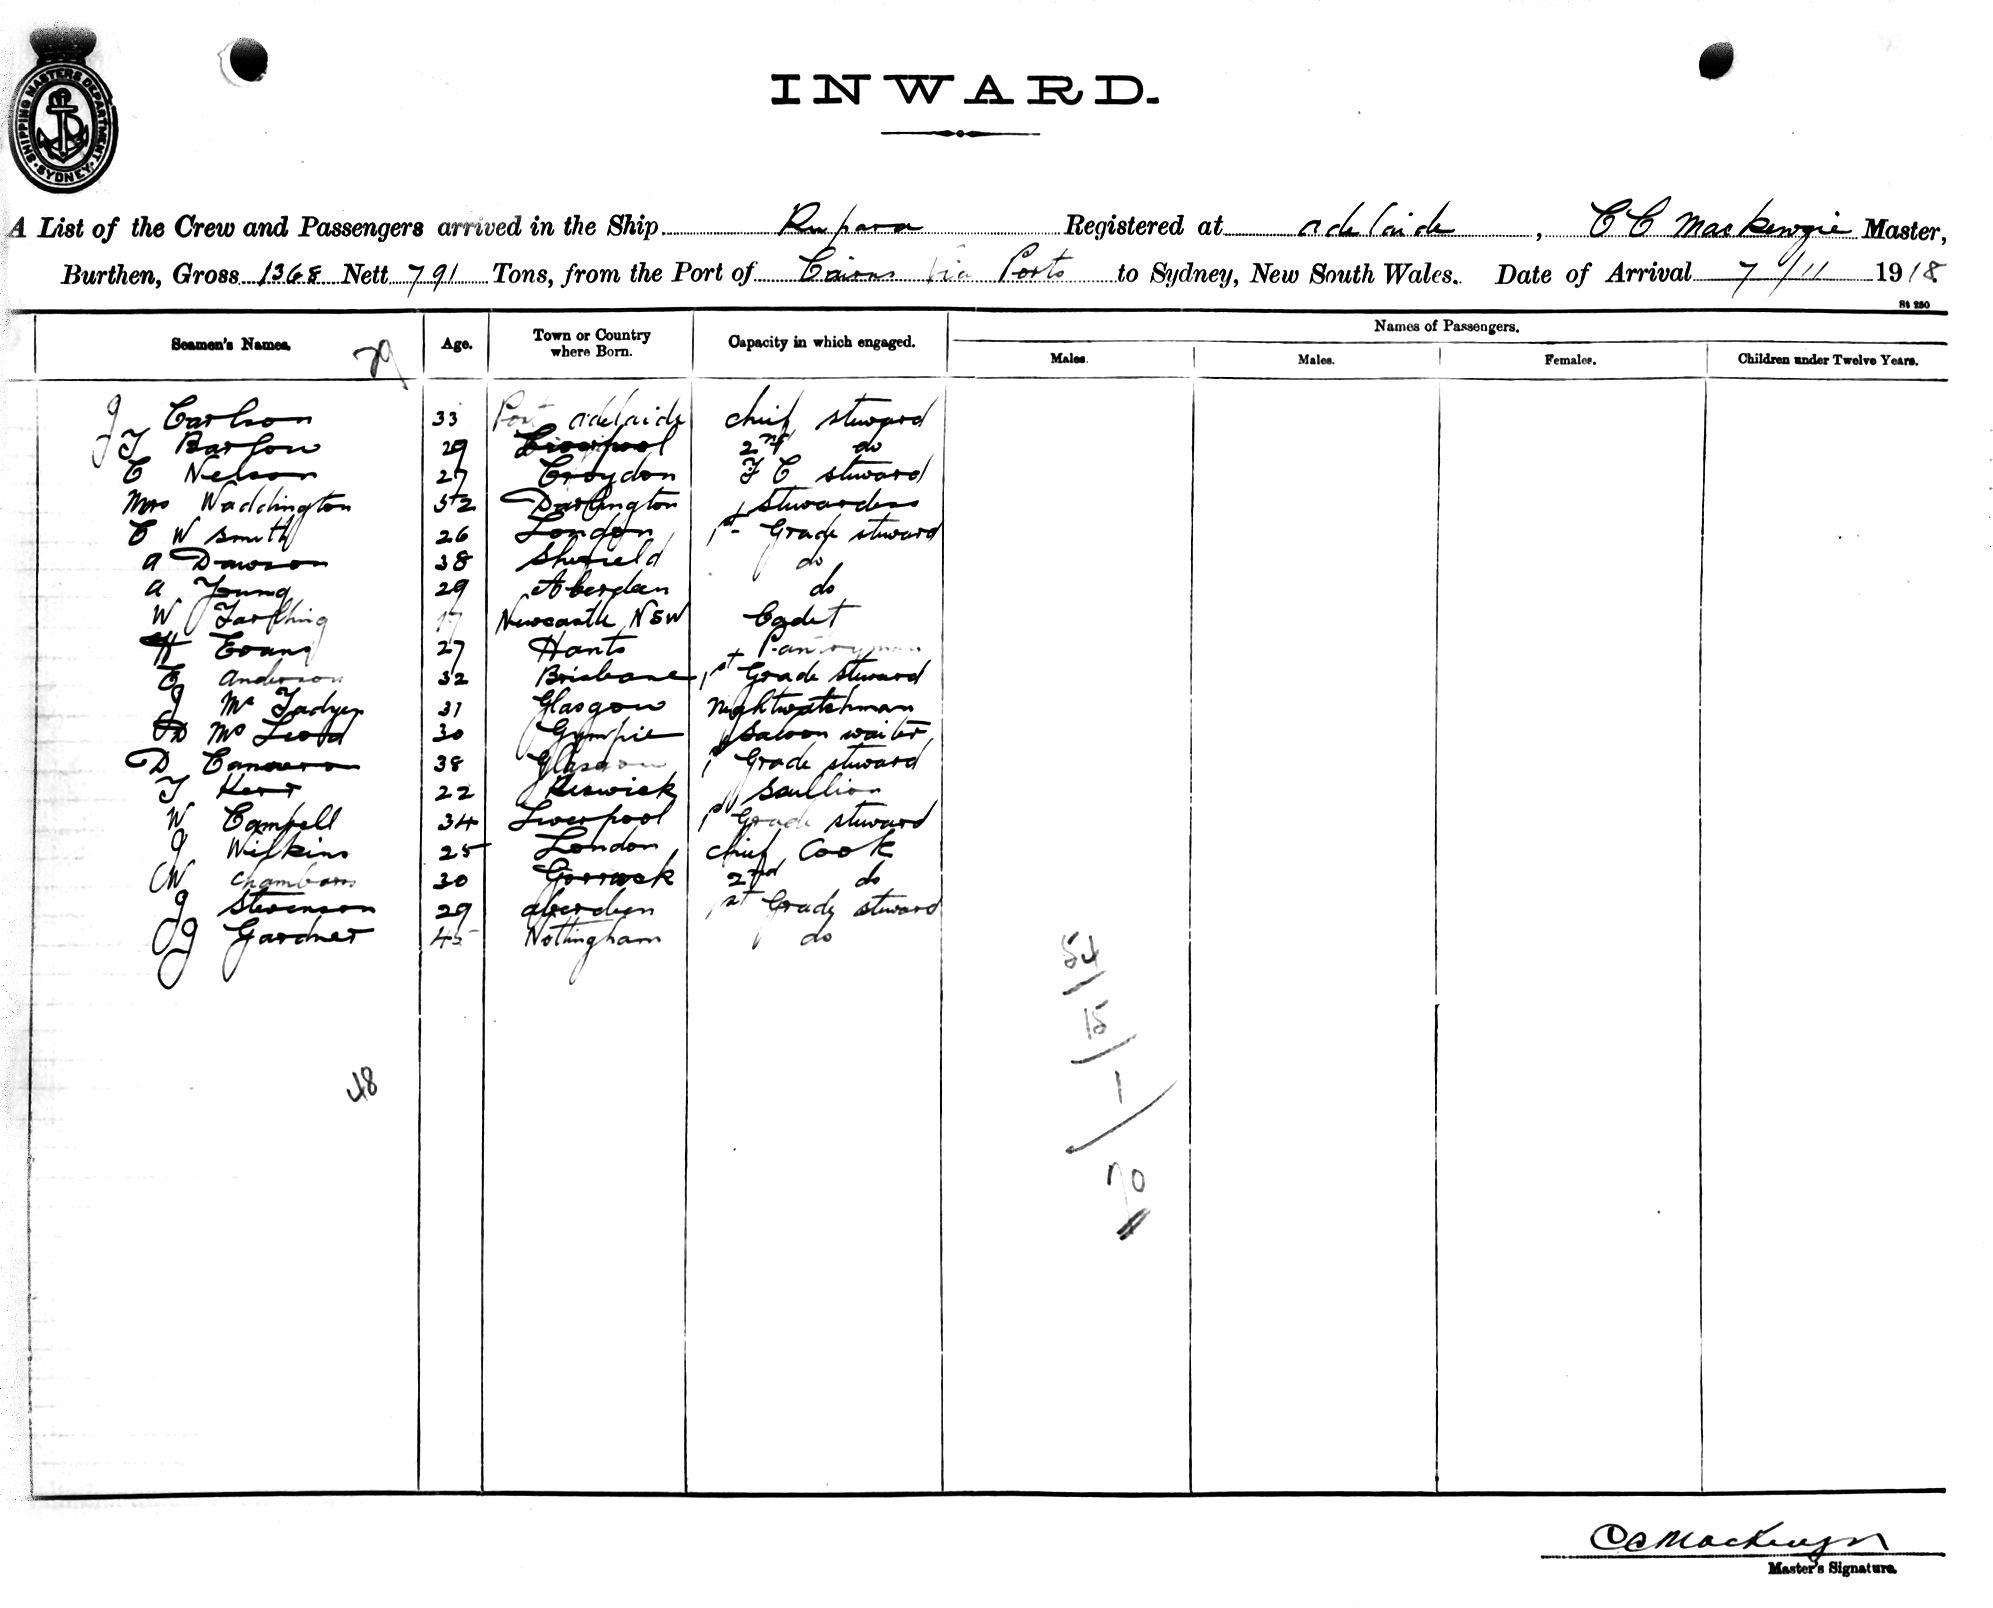 SHIPPING MASTERS DEPARTMENT SYDNEY
INWARD.
A List of the Crew and Passengers arrived in the Ship Rupara Registered at adelaide, C C Mackenzie Master,
Burthen, Gross 1368 Nett 791 Tons, from the Port of Cairns Via Ports to Sydney, New South Wales. Date of Arrival 7/11 1918
St 250
Seamen's Names. 79 Age. Town or Country where Born. Capacity in which engaged. Names of Passengers.
Males. Males. Females. Children under Twelve Years.
J Carlson 33 Port adelaide chief steward
T Barlow 29 Liverpool 2nd do
C Nelson 27 Croydon F C steward
Mrs Waddington 52 Darlington Stewardess
C W Smith 26 London 1st Grade steward
A Dawson 38 Sheffield do
A Young 29 Aberdeen do
W Farthing 17 Newcastle NSW Cadet
H Evans 27 Hants Pantryman
E anderson 32 Brisbane 1st Grade steward
J Mc Fadyen 31 Glasgow nightwatchman
D Mc Leod 30 Gympie Saloon waiter
D Cameron 38 Glasgow 1st Grade steward
T Kerr 22 Keswick Scullion
W Campell 34 Liverpool 1st Grade steward
J Wilkins 25 London chief Cook
W Chambers 30 2nd do
J Stevenson 29 aberdeen 1st Grade steward
J G Gardner 45 Nottingham do
54
15
1
70
48
C C Mackenzie
Master's Signature.